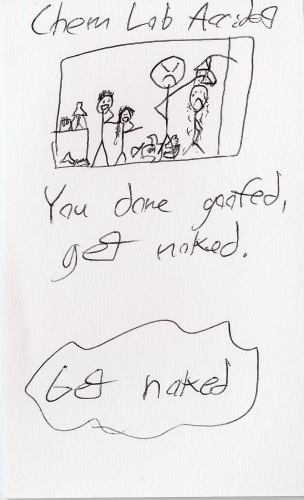 Chem Lab Accident
You done goofed,
get naked.
Get naked